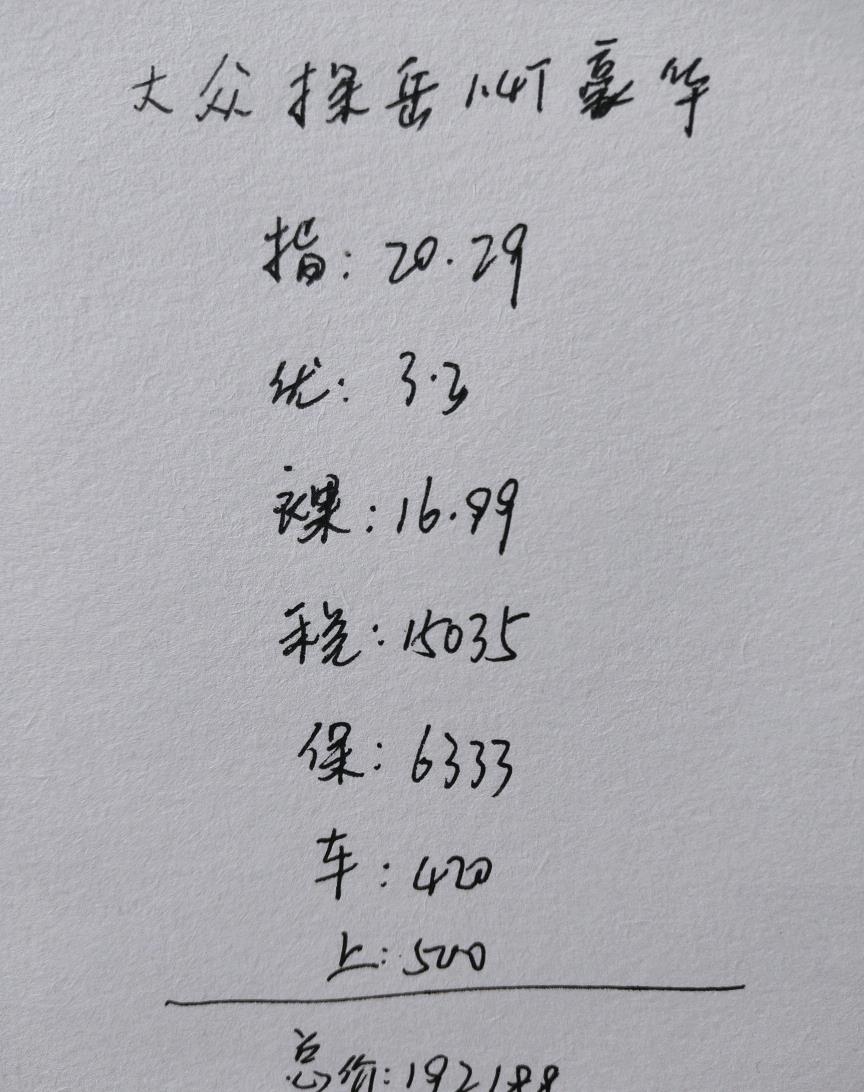 大众探岳1.4T豪华
指:20.29
优:3.3
裸:16.99
税:15035
保:6333
车:420
上:500
总价:192188